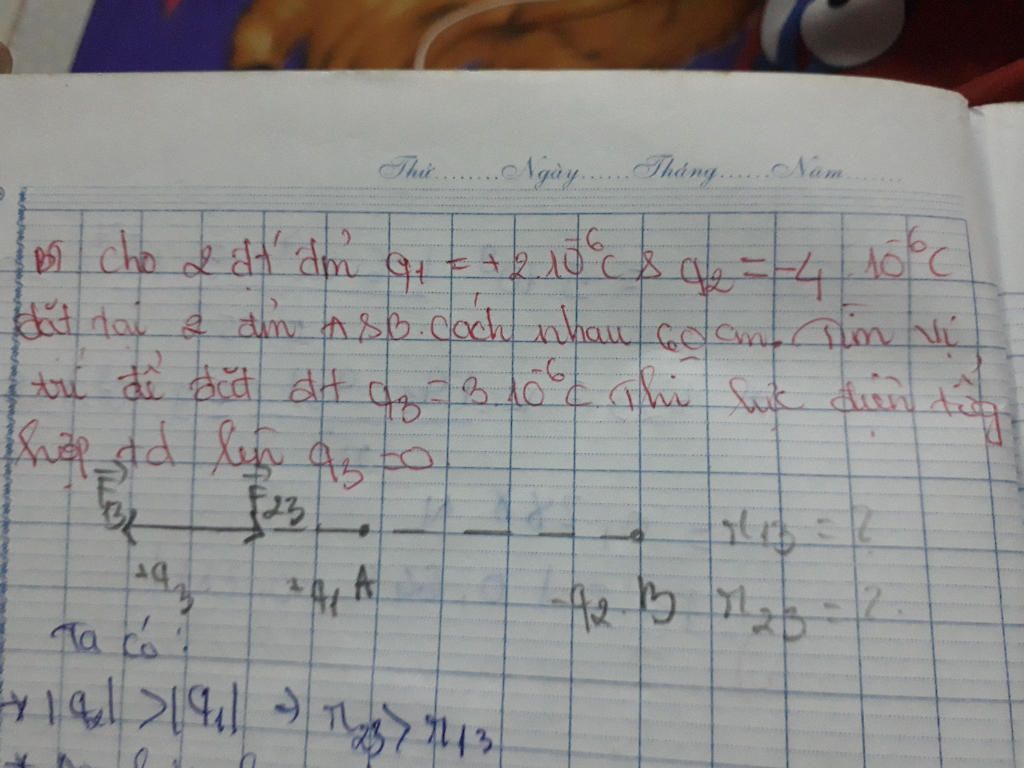 Thứ........Ngày......Tháng......Năm.......
Cho 2 đt đ' q₁ = +2.10⁻⁶C & q₂ = -4.10⁻⁶C
đặt tại 2 A & B cách nhau 60 cm. Tìm vị
trí để đặt đt q₃ = 3.10⁻⁶C. Thì lực điện tổng
hợp td lên q₃ = 0
F₁₃ F₂₃ r₁₃ = ?
+q₃ +q₁ A -q₂ B r₂₃ = ?
Ta có:
* |q₂| > |q₁| → r₂₃ > r₁₃